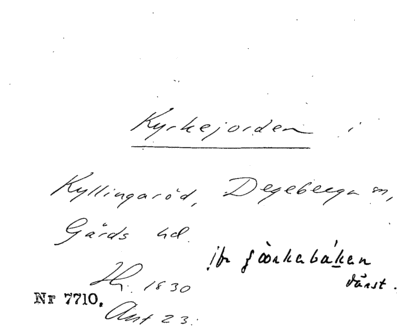 Kyrkejorden i
Kyllingaröd, Degeberga sn,
Gärds hd.
jfr
därst.
Hr. 1830
Nr 7710.
Ant 23.